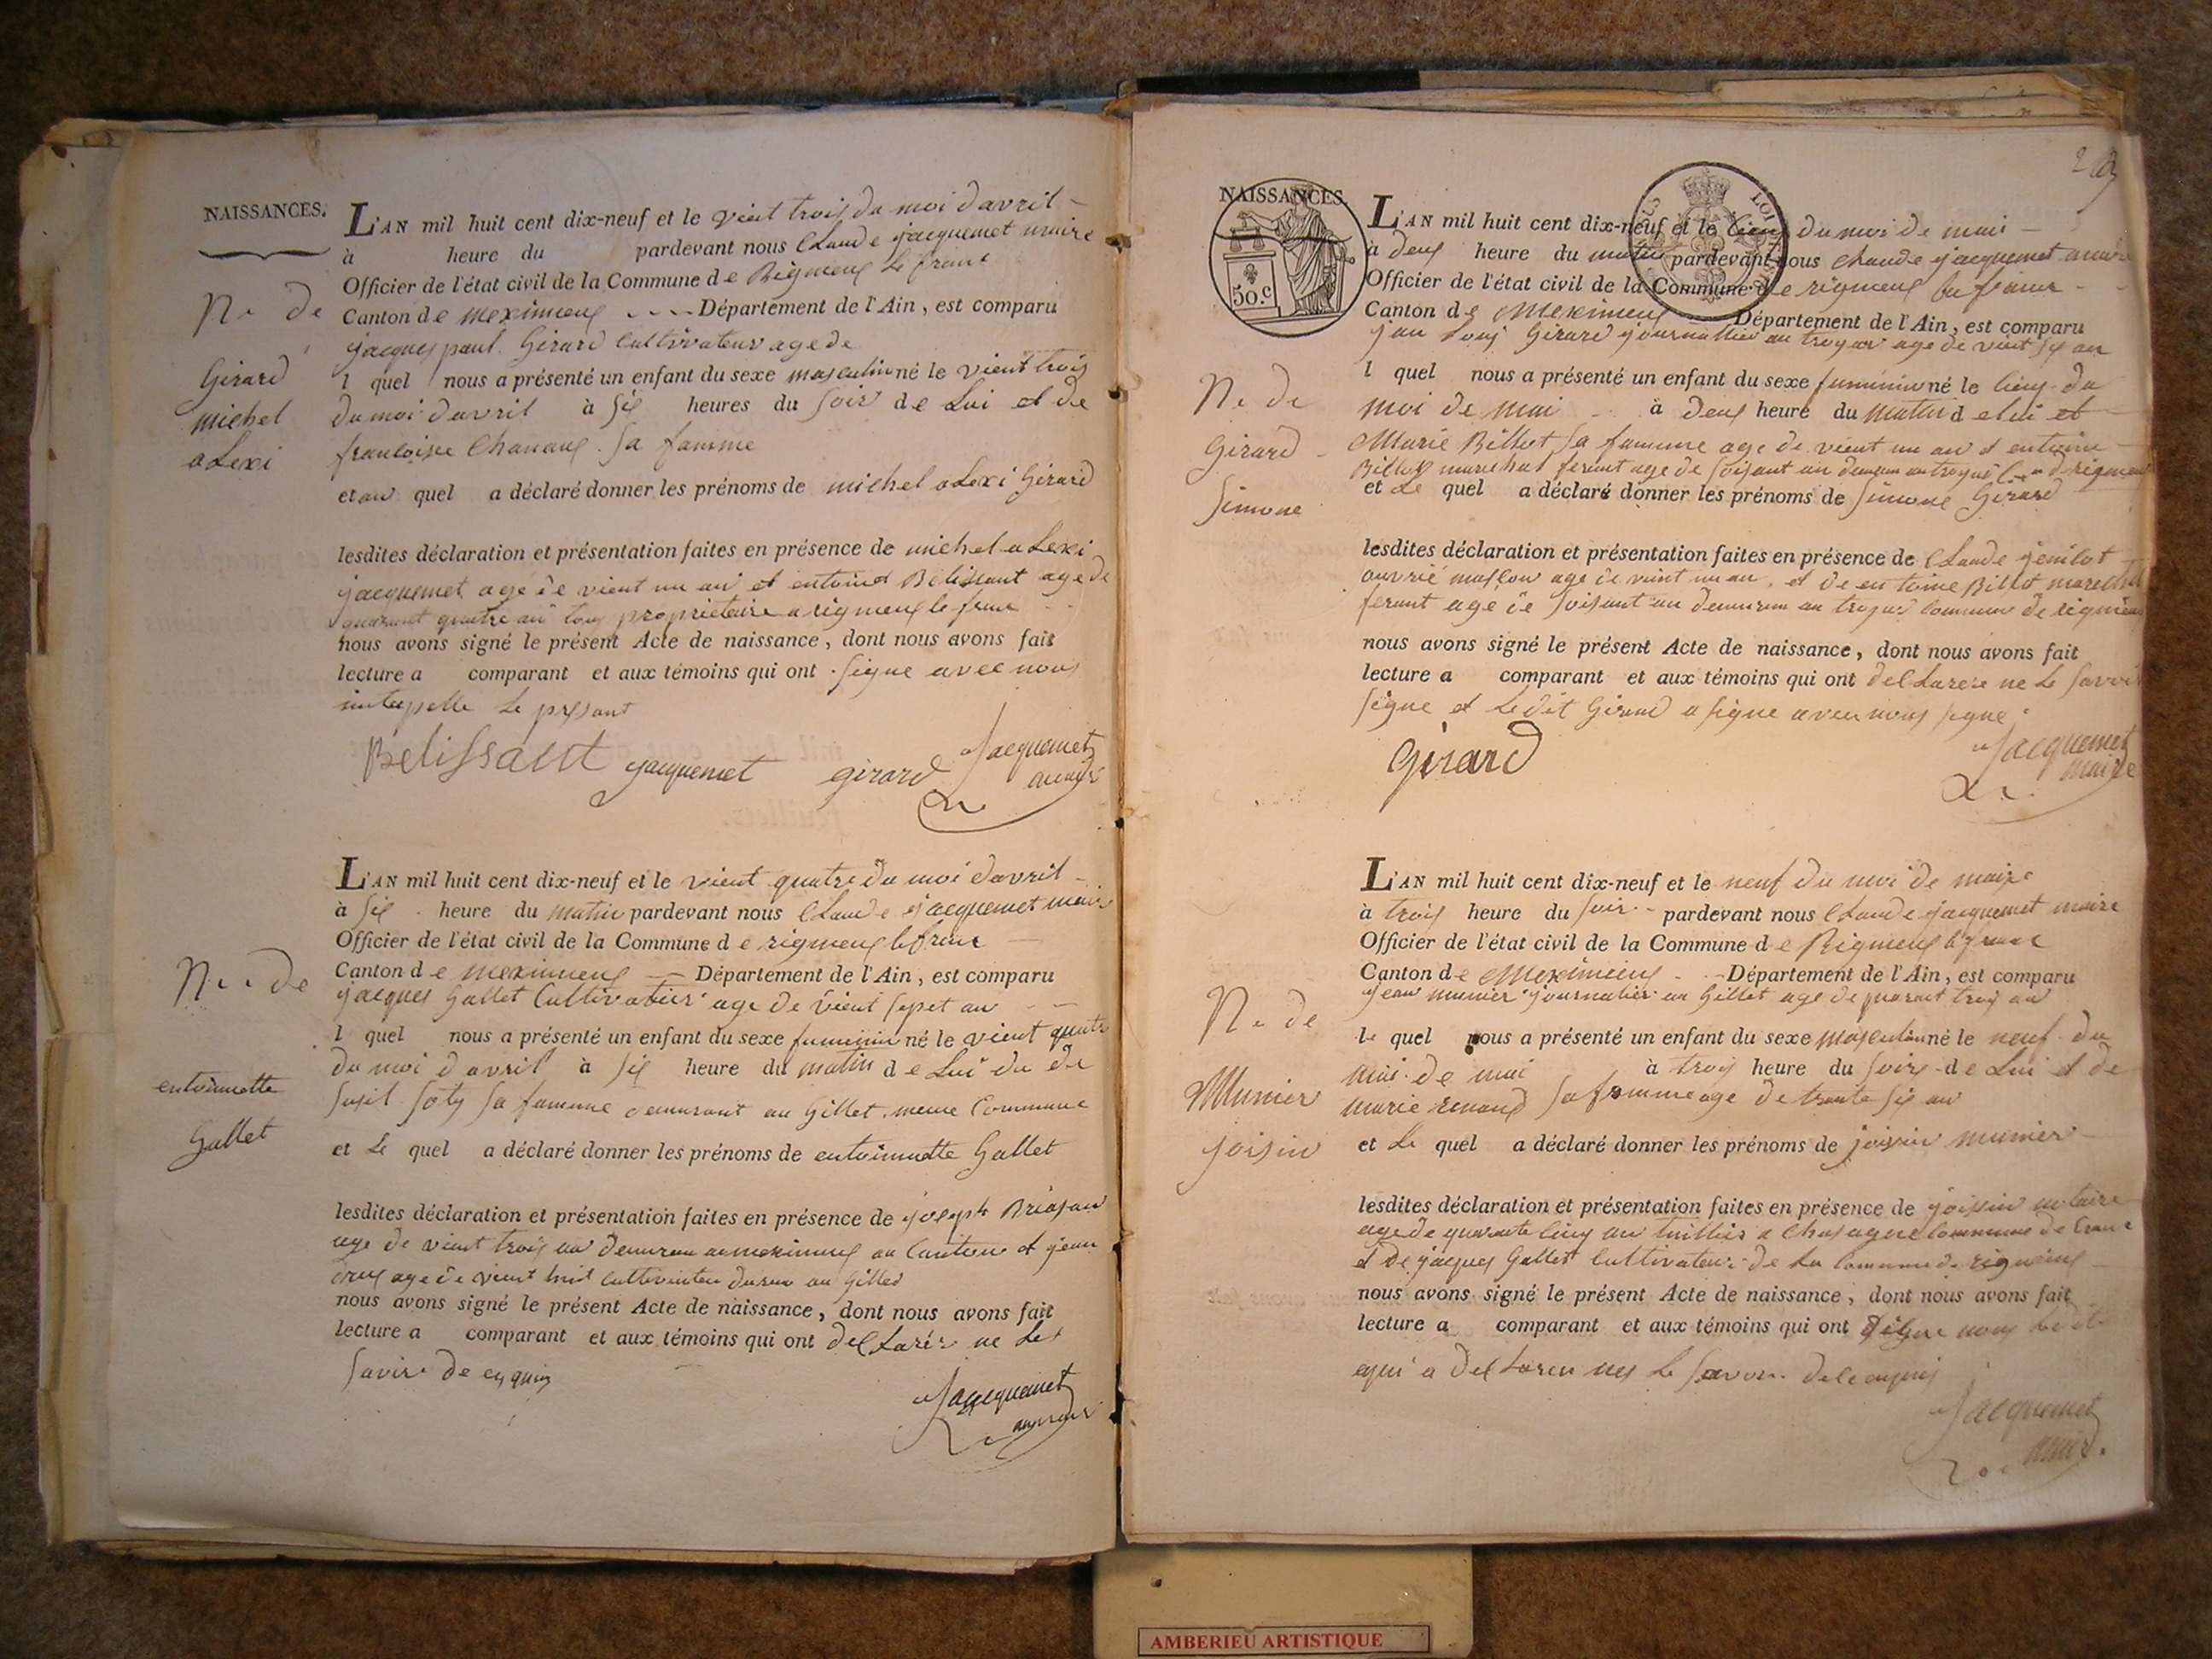 NAISSANCES.
L'AN mil huit cent dix-neuf et le vient trois du moi davril
à heure du pardevant nous Claude jacquemet maire
Officier de l'état civil de la Commune de Rigneux le franc
N. de
Canton de meximieux Département de l'Ain, est comparu
jacques paul Girard Cultivateur age de
Girard
l quel nous a présenté un enfant du sexe masculin né le vient trois
michel
du moi davril à six heures du soir de Lui et de
aLexi
francoise Chanaux sa famme
et au quel a déclaré donner les prénoms de michel aLexi Girard
lesdites déclaration et présentation faites en présence de michel aLexi
jacquemet age de vient un an et entoine Belissant age de
quarant quatre an tous proprietaire a rigneux le franc
nous avons signé le présent Acte de naissance, dont nous avons fait
lecture a comparant et aux témoins qui ont signe avec nous
Le present
Belissant jacquemet girard Jacquemet
maire
L'AN mil huit cent dix-neuf et le vient quatre du moi davril
à six heure du matin pardevant nous Claude jacquemet maire
Officier de l'état civil de la Commune de rigneux le franc
N. de
Canton de meximieux Département de l'Ain, est comparu
jacques Gallet Cultivateur age de vient sepet an
l quel nous a présenté un enfant du sexe feminin né le vient quatre
du moi davril à six heure du matin de Lui du de
entoinnette
sa famme demurant au Gillet meme Commune
Gallet
et Le quel a déclaré donner les prénoms de entoinnette Gallet
lesdites déclaration et présentation faites en présence de joseph
age de vient trois an demuran a meximieux au Canton et jean
age de vient huit au Gillet
nous avons signé le présent Acte de naissance, dont nous avons fait
lecture a comparant et aux témoins qui ont declarér ne Le
savoir de
Jacquemet
maire
NAISSANCES.
50.c
LOI
L'AN mil huit cent dix-neuf et le cieux du moi de mai
à deux heure du matin pardevant nous Claude jacquemet maire
Officier de l'état civil de la Commune de rigneux le franc
Canton de Meximieux Département de l'Ain, est comparu
jan Louis Girard journallier au age de vient six an
l quel nous a présenté un enfant du sexe feminin né le cieux du
N. de
moi de mai à deux heure du matin de lui et
Girard
Marie Billiot sa famme age de vient un an et entoine
Billiot marechal ferant age de soisant an
Simone
et Le quel a déclaré donner les prénoms de Simone Girard
lesdites déclaration et présentation faites en présence de Claude
ouvrié masson age de vient un an et de entoine Billiot marechal
ferant age de soisant an demuran au commune de rigneux
nous avons signé le présent Acte de naissance, dont nous avons fait
lecture a comparant et aux témoins qui ont declarere ne Le savoir
signe et Ledit Girard a signe avec nous
Girard
Jacquemet
maire
L'AN mil huit cent dix-neuf et le neuf du moi de
à trois heure du soir pardevant nous Claude jacquemet maire
Officier de l'état civil de la Commune de Rigneux le franc
Canton de Meximieux Département de l'Ain, est comparu
jean munier journalier au Gillet age de quarant trois an
N. de
le quel nous a présenté un enfant du sexe masculin né le neuf du
moi de mai à trois heure du soir de Lui et de
Munier
marie renaud sa femme age de trante six an
joisin
et Le quel a déclaré donner les prénoms de joisin munier
lesdites déclaration et présentation faites en présence de joisin
age de quarante cinq an commune de Cran
et De jacques Gallet Cultivateur de La commune de rigneux
nous avons signé le présent Acte de naissance, dont nous avons fait
lecture a comparant et aux témoins qui ont signe nous
qui a Le savoir
Jacquemet
maire
AMBERIEU ARTISTIQUE